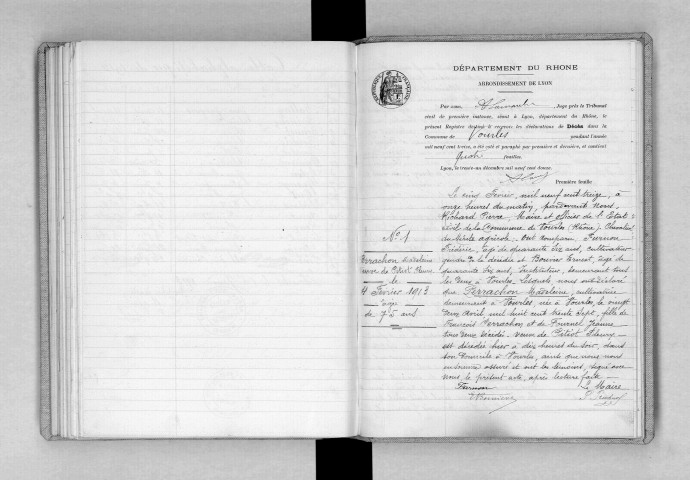 DÉPARTEMENT DU RHONE
ARRONDISSEMENT DE LYON
Par nous, Juge près le Tribunal
civil de première instance, séant à Lyon, département du Rhône, le
présent Registre destiné à recevoir les déclarations de Décès dans la
Commune de Vourles pendant l'année
mil neuf cent treize, a été coté et paraphé par première et dernière, et contient
feuilles.
Lyon, le trente-un décembre mil neuf cent douze.
Première feuille
Nº 1
Perrachon Madeleine
veuve de
le
4 Février 1913
âge
de 75 ans
Le cinq Février, mil neuf cent treize, à
onze heures du matin, pardevant Nous,
Richard Pierre, Maire et officier de l'Etat
civil de la Commune de Vourles (Rhône) Chevalier
du Mérite agricole, ont comparu Furnon
Frédéric, âgé de quarante six ans, cultivateur
gendre de la décédée et Bouvier Ernest, âgé de
quarante six ans, Instituteur, demeurant tous
les deux à Vourles, Lesquels nous ont déclaré
que Perrachon Madeleine, cultivatrice
demeurant à Vourles, née à Vourles, le vingt
deux Avril mil huit cent trente sept, fille de
François Perrachon et de Fournel Jeanne
tous deux décédés, veuve de Fleury
est décédée hier à dix heures du soir, dans
son domicile à Vourles, ainsi que nous nous
en sommes assuré et ont les témoins, signé avec
nous le présent acte, après lecture faite
Furnon Le Maire